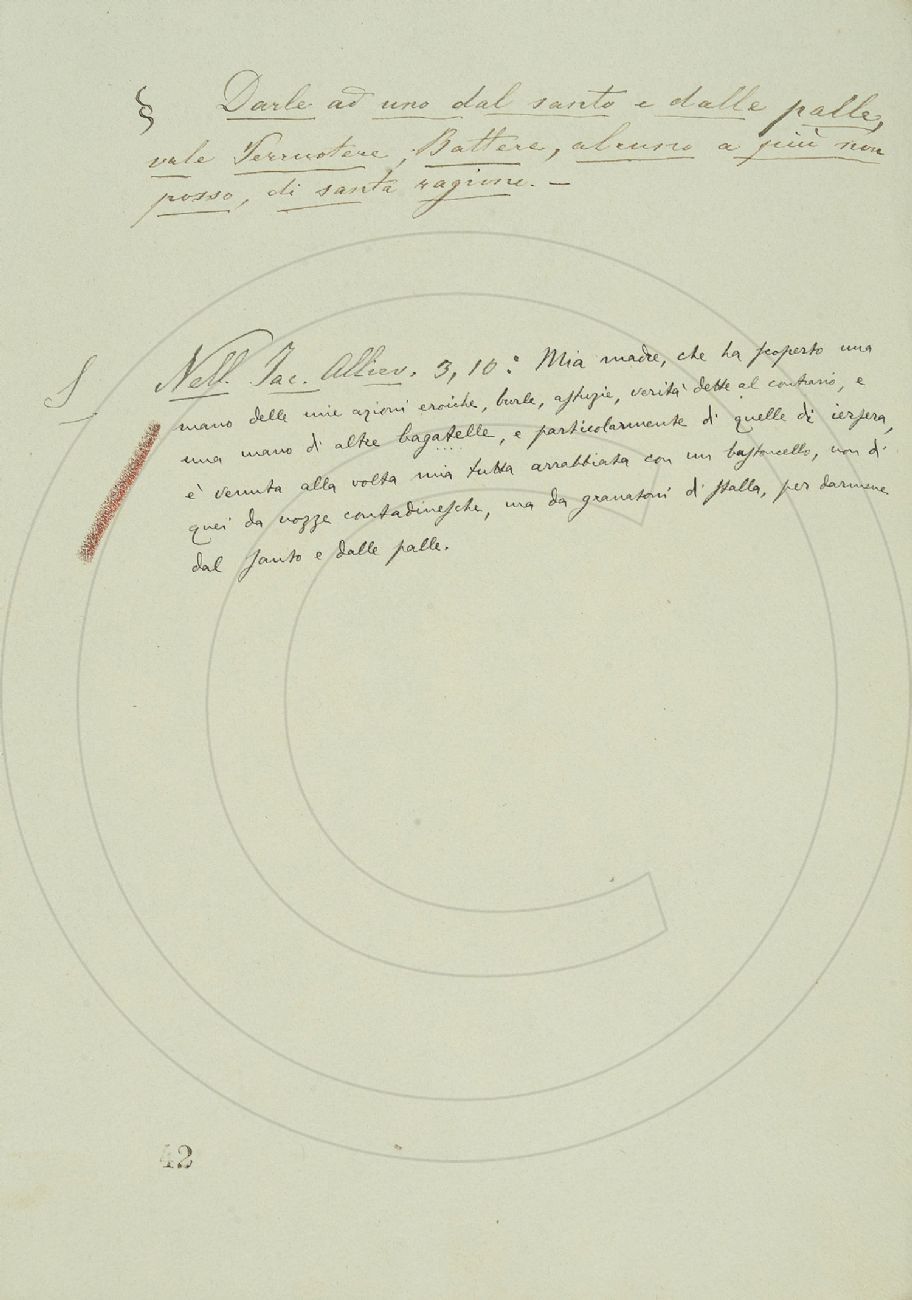 § Darle ad uno dal santo e dalle palle,
vale Percuotere, Battere, alcuno a più non
posso, di santa ragione. –
S Nell. Jac. Alliev. 3, 10: Mia madre, che ha scoperto una
mano delle mie azioni eroiche, burle, astuzie, verità dette al contrario, e
una mano di altre bagatelle, e particolarmente di quelle di iersera,
è venuta alla volta mia tutta arrabbiata con un bastoncello, non di
quei da nozze contadinesche, ma da granatoni di stalla, per darmene
dal santo e dalle palle.
42